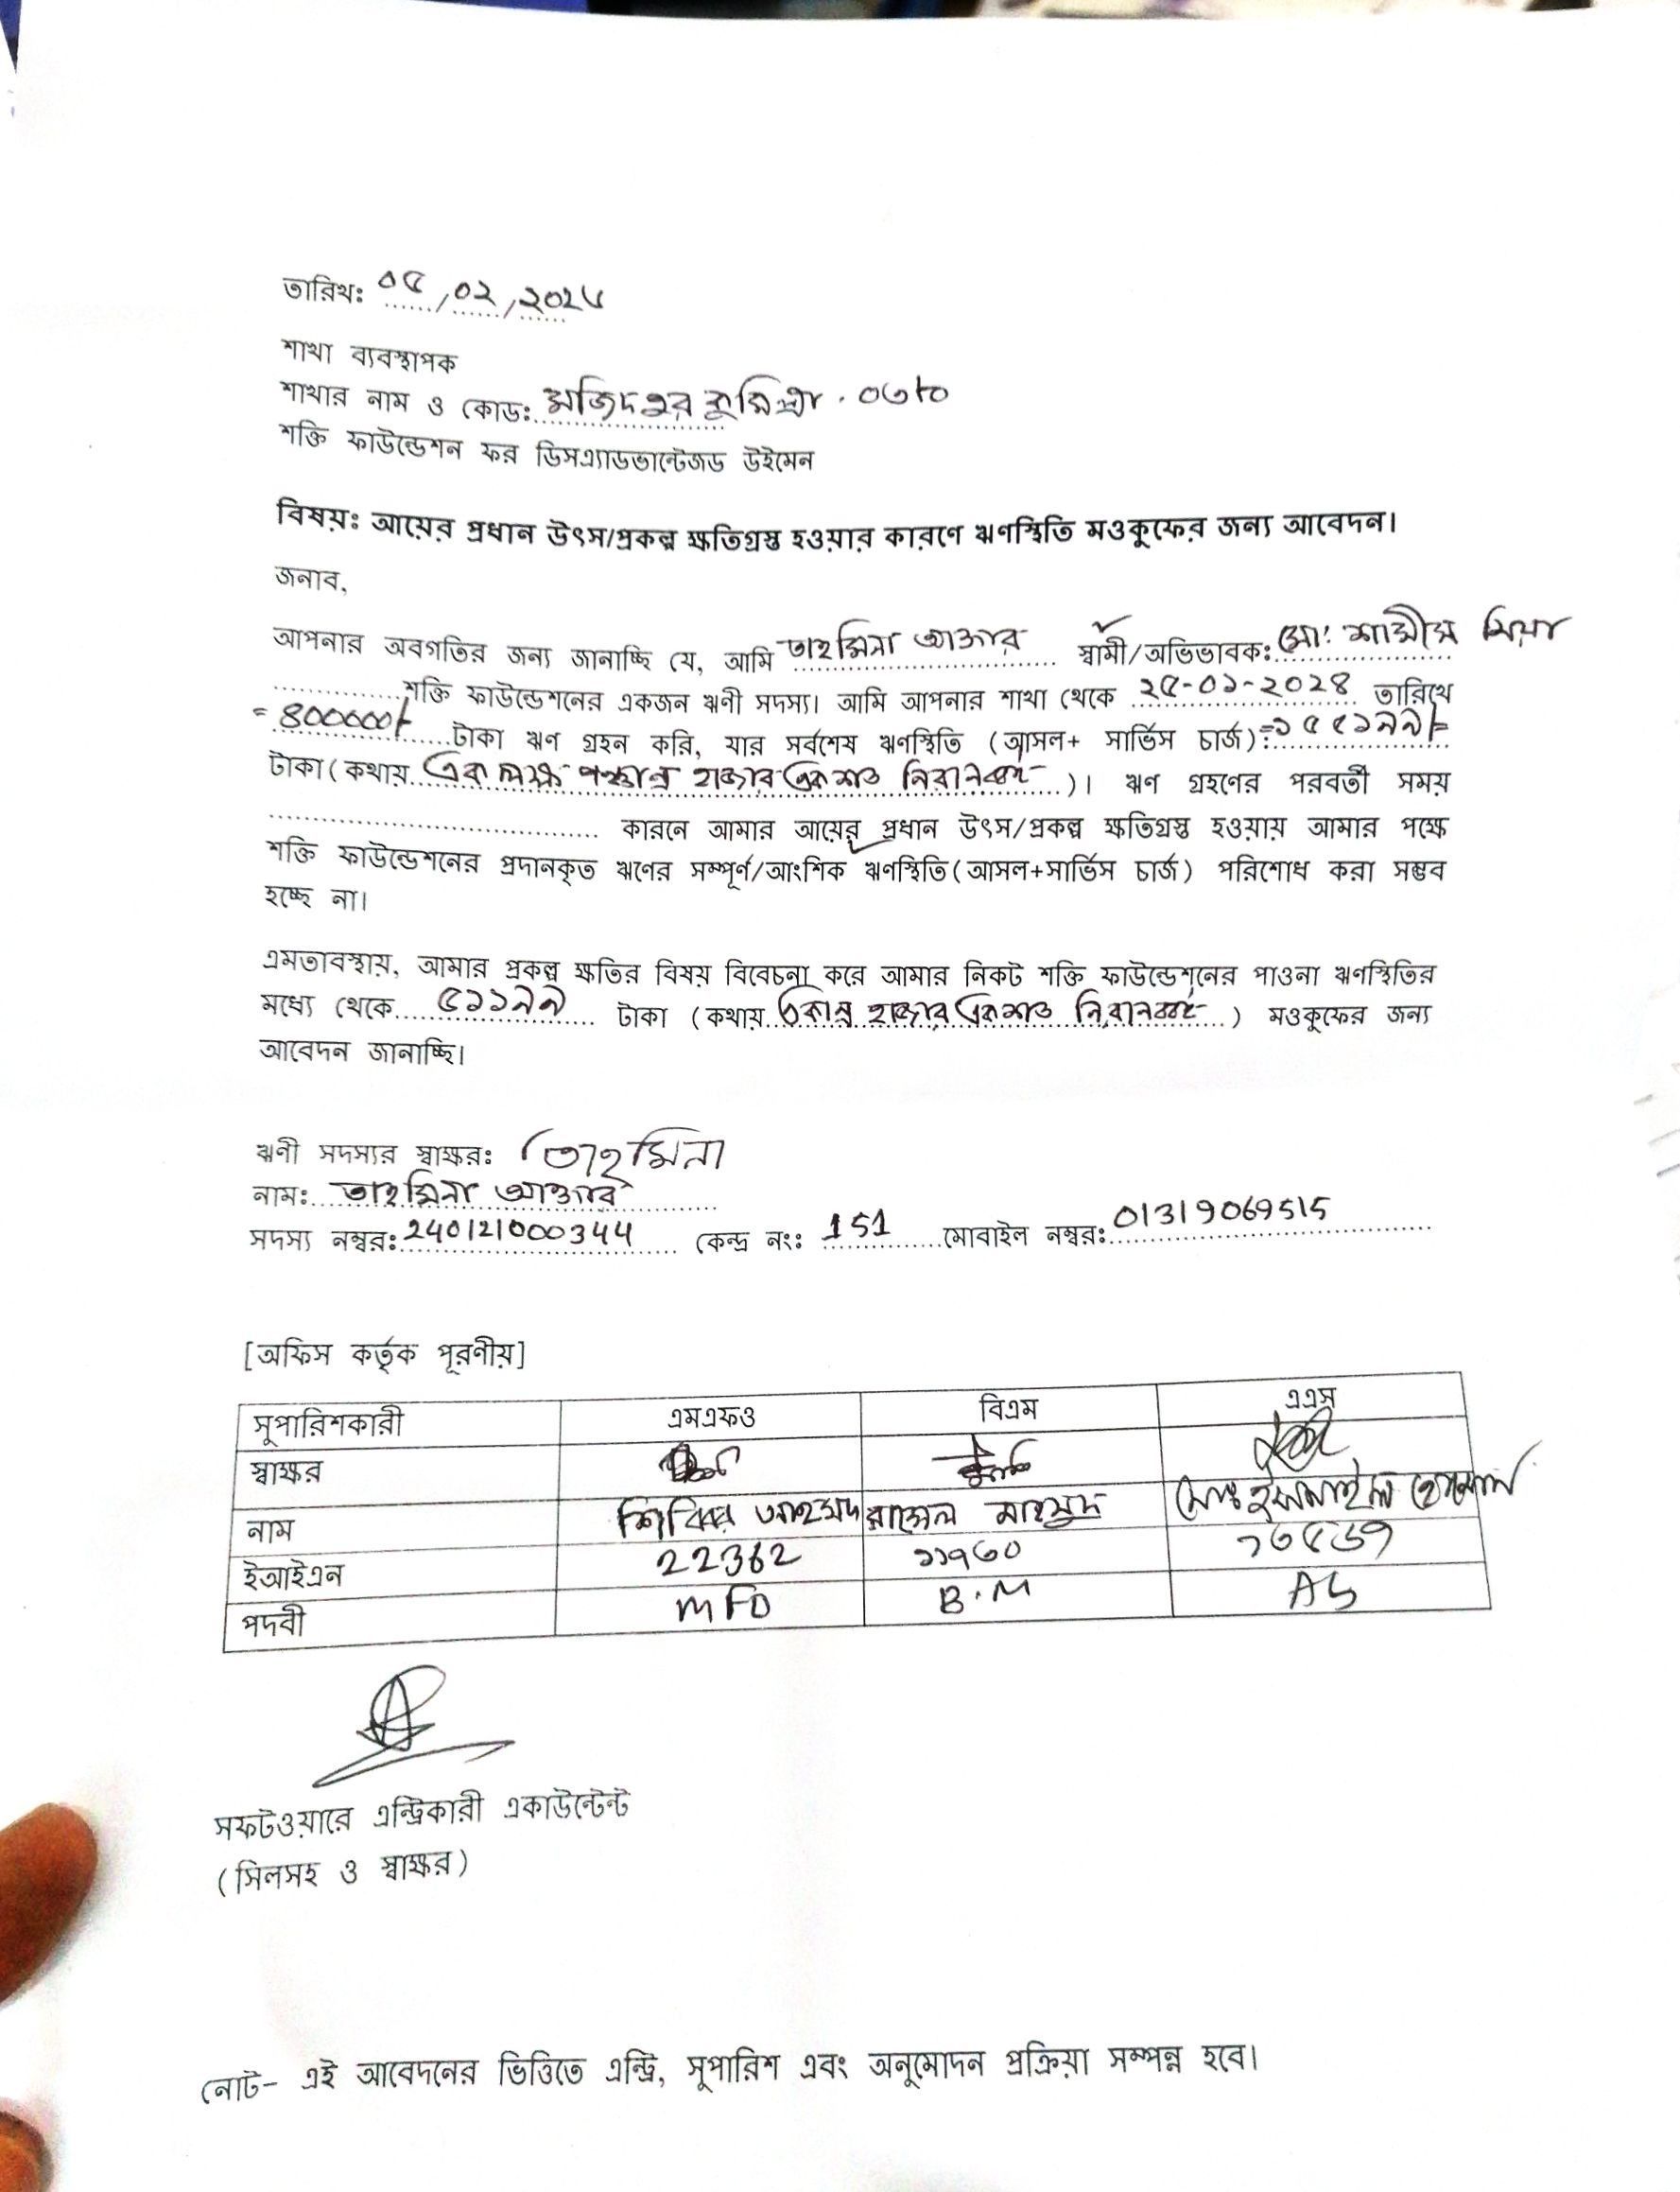 তারিখ: ০৫/০২/২০২৬
শাখা ব্যবস্থাপক
শাখার নাম ও কোড: কুমিল্লা. ০৩৮০
শক্তি ফাউন্ডেশন ফর ডিসএ্যাডভান্টেজড উইমেন
বিষয়ঃ আয়ের প্রধান উৎস/প্রকল্প ক্ষতিগ্রস্ত হওয়ার কারণে ঋণস্থিতি মওকুফের জন্য আবেদন।
জনাব,
আপনার অবগতির জন্য জানাচ্ছি যে, আমি তাহমিনা আক্তার স্বামী/অভিভাবক: মো: শামীম মিয়া
শক্তি ফাউন্ডেশনের একজন ঋণী সদস্য। আমি আপনার শাখা থেকে ২৫-০১-২০২৪ তারিখে
= ৪০০০০০/- টাকা ঋণ গ্রহন করি, যার সর্বশেষ ঋণস্থিতি (আসল+ সার্ভিস চার্জ):=১৫৫১৯৯/-
টাকা (কথায় এক লক্ষ পঞ্চান্ন হাজার একশত নিরানব্বই)। ঋণ গ্রহণের পরবর্তী সময়
কারনে আমার আয়ের প্রধান উৎস/প্রকল্প ক্ষতিগ্রস্ত হওয়ায় আমার পক্ষে
শক্তি ফাউন্ডেশনের প্রদানকৃত ঋণের সম্পূর্ণ/আংশিক ঋণস্থিতি(আসল+সার্ভিস চার্জ) পরিশোধ করা সম্ভব
হচ্ছে না।
এমতাবস্থায়, আমার প্রকল্প ক্ষতির বিষয় বিবেচনা করে আমার নিকট শক্তি ফাউন্ডেশনের পাওনা ঋণস্থিতির
মধ্যে থেকে ৫১১৯৯ টাকা (কথায় একান্ন হাজার একশত নিরানব্বই) মওকুফের জন্য
আবেদন জানাচ্ছি।
ঋণী সদস্যর স্বাক্ষরঃ তাহমিনা
নামঃ তাহমিনা আক্তার
সদস্য নম্বরঃ 240121000344 কেন্দ্র নংঃ 151 মোবাইল নম্বরঃ 01319069515
[অফিস কর্তৃক পূরণীয়]
সুপারিশকারী এমএফও বিএম এএস
স্বাক্ষর
নাম আহমদ রাসেল মাহমুদ মোঃ ইসমাইল হোসেন
ইআইএন 22362 ১১৭৩০ ১৩৫৬৭
পদবী MFO B.M AS
সফটওয়ারে এন্ট্রিকারী একাউন্টেন্ট
(সিলসহ ও স্বাক্ষর)
নোট- এই আবেদনের ভিত্তিতে এন্ট্রি, সুপারিশ এবং অনুমোদন প্রক্রিয়া সম্পন্ন হবে।